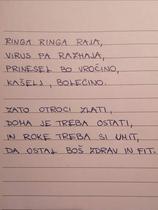 RINGA RINGA RAJA,
VIRUS PA RAZHAJA,
PRINESEL BO VROČINO,
KAŠELJ, BOLEČINO.
ZATO OTROCI ZLATI,
DOMA JE TREBA OSTATI,
IN ROKE TREBA SI UMIT,
DA OSTAL BOŠ ZDRAV IN FIT.